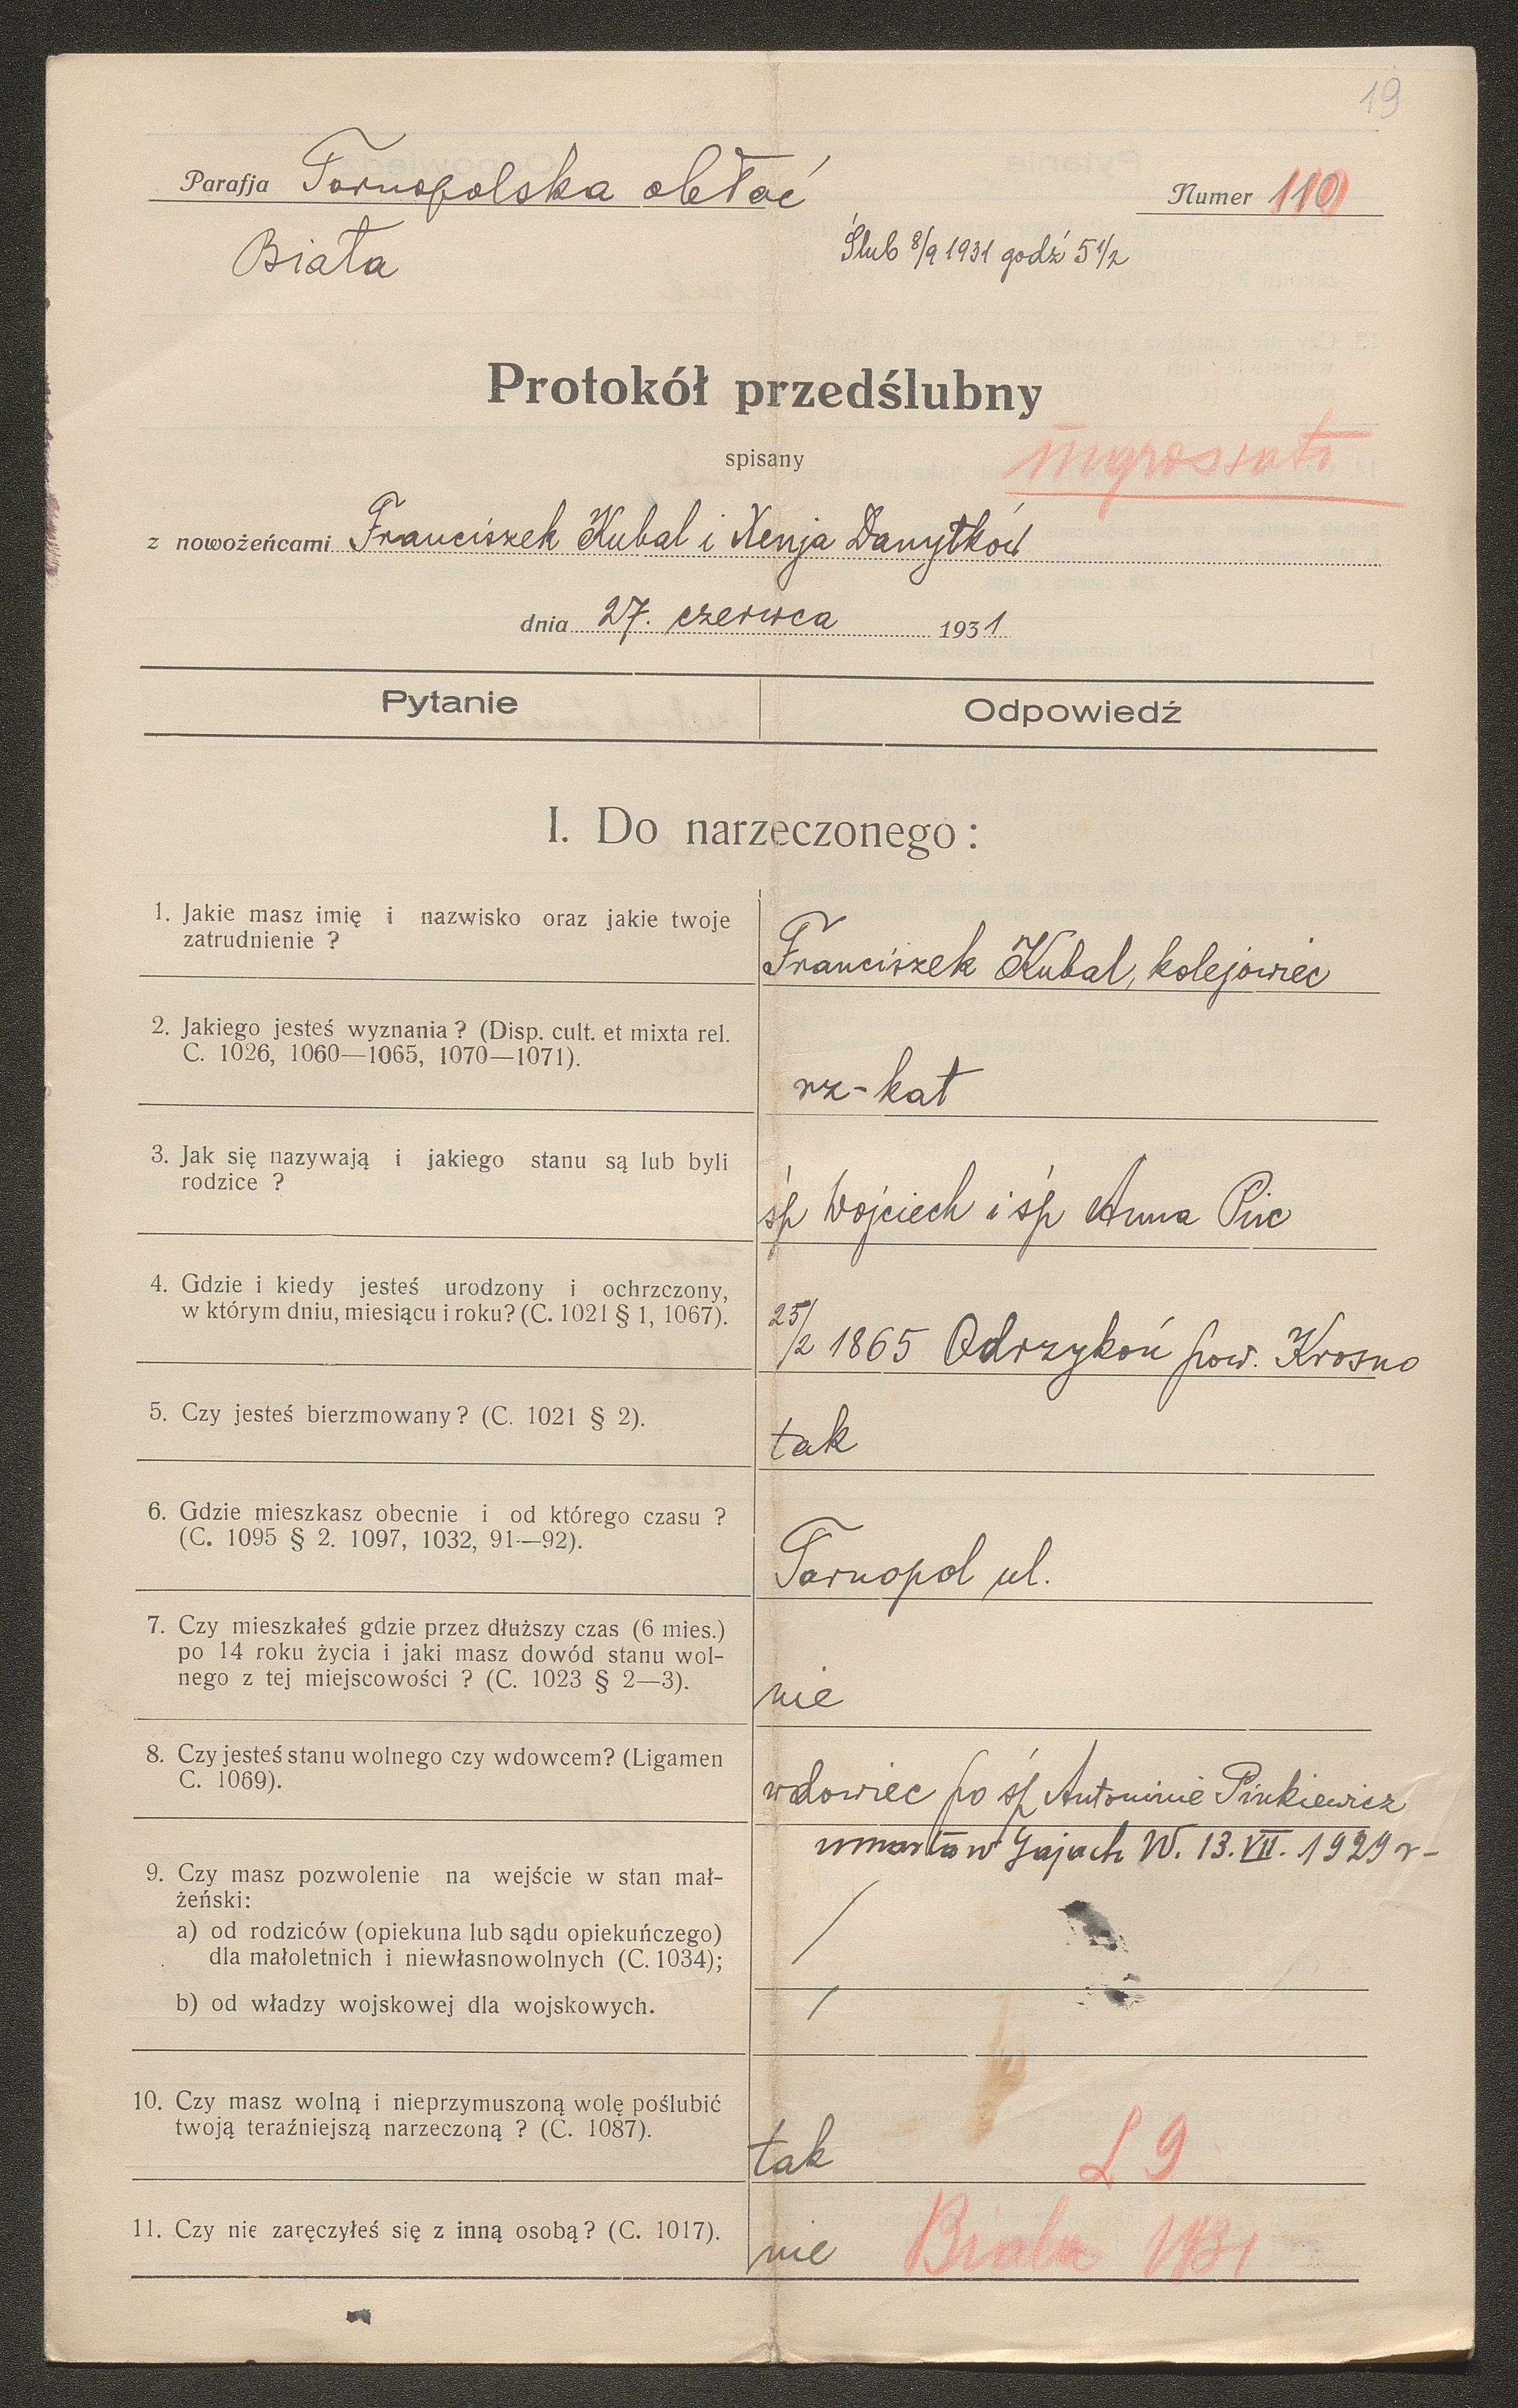 19
Parafja Tarnopolska obłać
Numer 110
Biała
Ślub 8/9 1931 godź 5 1/2
Protokół przedślubny
spisany
ingrossata
z nowożeńcami Franciszek Kubal i Xenja Danyłków
dnia 27. czerwca 1931
Pytanie
Odpowiedź
I. Do narzeczonego:
1. Jakie masz imię i nazwisko oraz jakie twoje
zatrudnienie ?
Franciszek Kubal, kolejowiec
2. Jakiego jesteś wyznania ? (Disp. cult. et mixta rel.
C. 1026, 1060—1065, 1070—1071).
rz-kat
3. Jak się nazywają i jakiego stanu są lub byli
rodzice ?
śp Wojciech i śp Anna
4. Gdzie i kiedy jesteś urodzony i ochrzczony,
w którym dniu, miesiącu i roku? (C. 1021 § 1, 1067).
25/2 1865 Odrzykoń pow. Krosno
5. Czy jesteś bierzmowany ? (C. 1021 § 2).
tak
6. Gdzie mieszkasz obecnie i od którego czasu ?
(C. 1095 § 2. 1097, 1032, 91—92).
Tarnopol ul.
7. Czy mieszkałeś gdzie przez dłuższy czas (6 mies.)
po 14 roku życia i jaki masz dowód stanu wol-
nego z tej miejscowości ? (C. 1023 § 2—3).
nie
8. Czy jesteś stanu wolnego czy wdowcem? (Ligamen
C. 1069).
wdowiec po śp Antoninie Pinkiewicz
umarła w Gajach W. 13. VII. 1929 r-
9. Czy masz pozwolenie na wejście w stan mał-
żeński:
a) od rodziców (opiekuna lub sądu opiekuńczego)
dla małoletnich i niewłasnowolnych (C. 1034);
/
b) od władzy wojskowej dla wojskowych.
/
10. Czy masz wolną i nieprzymuszoną wolę poślubić
twoją teraźniejszą narzeczoną ? (C. 1087).
tak
L 9
11. Czy nie zaręczyłeś się z inną osobą ? (C. 1017).
nie
Biała 1931